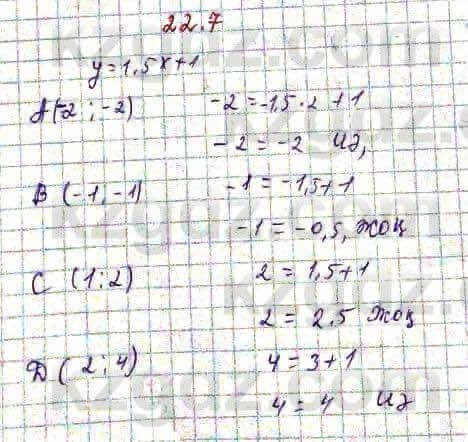 22.7
y=1,5x+1
A(-2;-2) -2=-1,5·2+1
-2=-2 Иә,
B (-1,-1) -1=-1,5+1
-1=-0,5, жоқ
C (1;2) 2=1,5+1
2=2.5 жоқ
D(2;4) 4=3+1
4=4 Иә